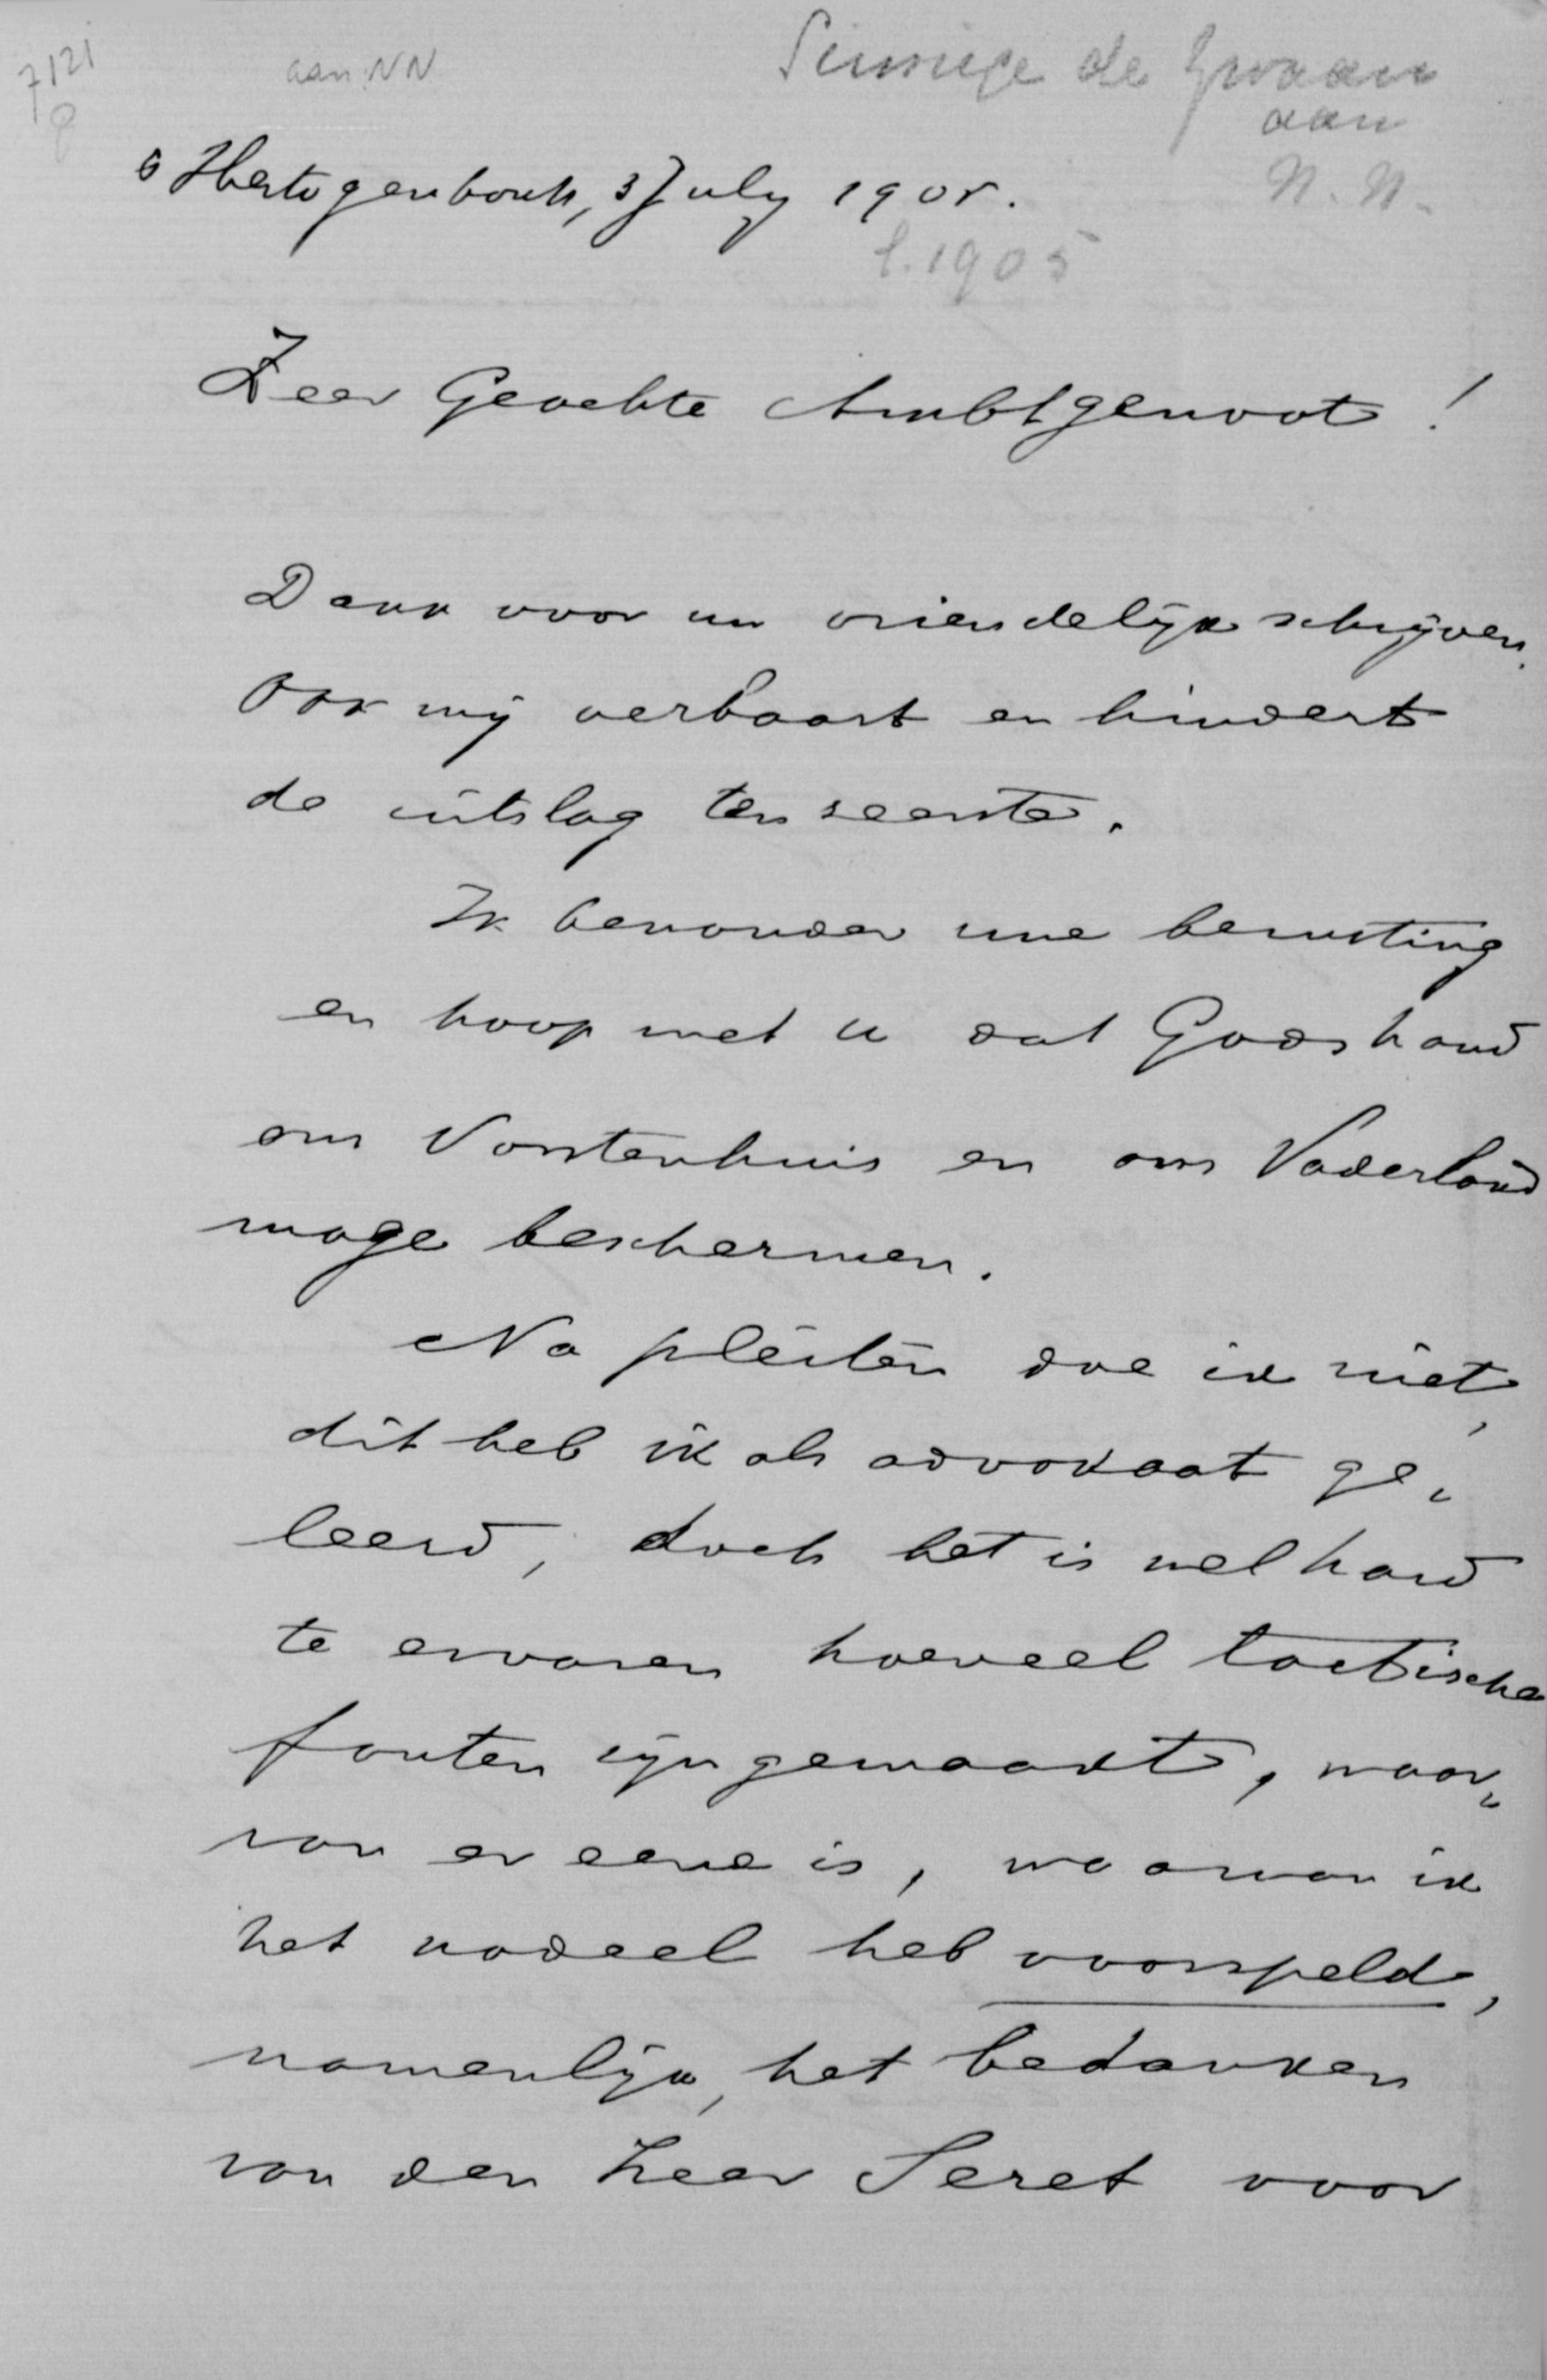 7121
aan NN
de
aan
N.N.
s Hertogenbosch, 3 July 1905.
1905
Zeer Geachte Ambtgenoot!
Dank voor uw vriendelijk schrijven.
Ook mij verbaast en hindert
de uitslag ten zeerste.
Ik bewonder uwe berusting
en hoop met u dat Gods hand
ons Vorstenhuis en ons Vaderland
moge beschermen.
Na pleiten doe ik niet,
dit heb ik als advokaat ge„
leerd, doch het is wel hard
te ervaren hoeveel tactische
fouten zijn gemaakt, waar„
van er eene is, waarvan ik
het nadeel heb voorspeld,
namenlijk, het bedanken
van den heer Seret voor